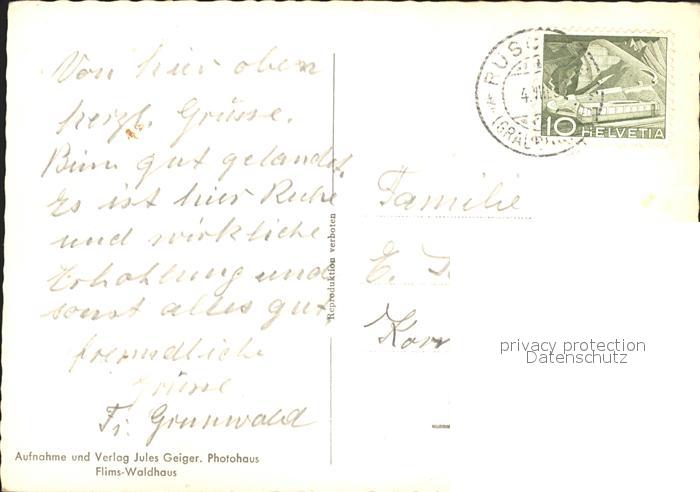 Von hier oben
herzl. Grüsse.
Binn gut gelandet.
Es ist hier Ruhe
und wirkliche
Erhohlung und
sonst alles gut.
freundliche
Grüsse
Fr. Grunwald
Aufnahme und Verlag Jules Geiger. Photohaus
Flims-Waldhaus
Reproduktion verboten
10 HELVETIA
Familie
E.
privacy protection
Datenschutz